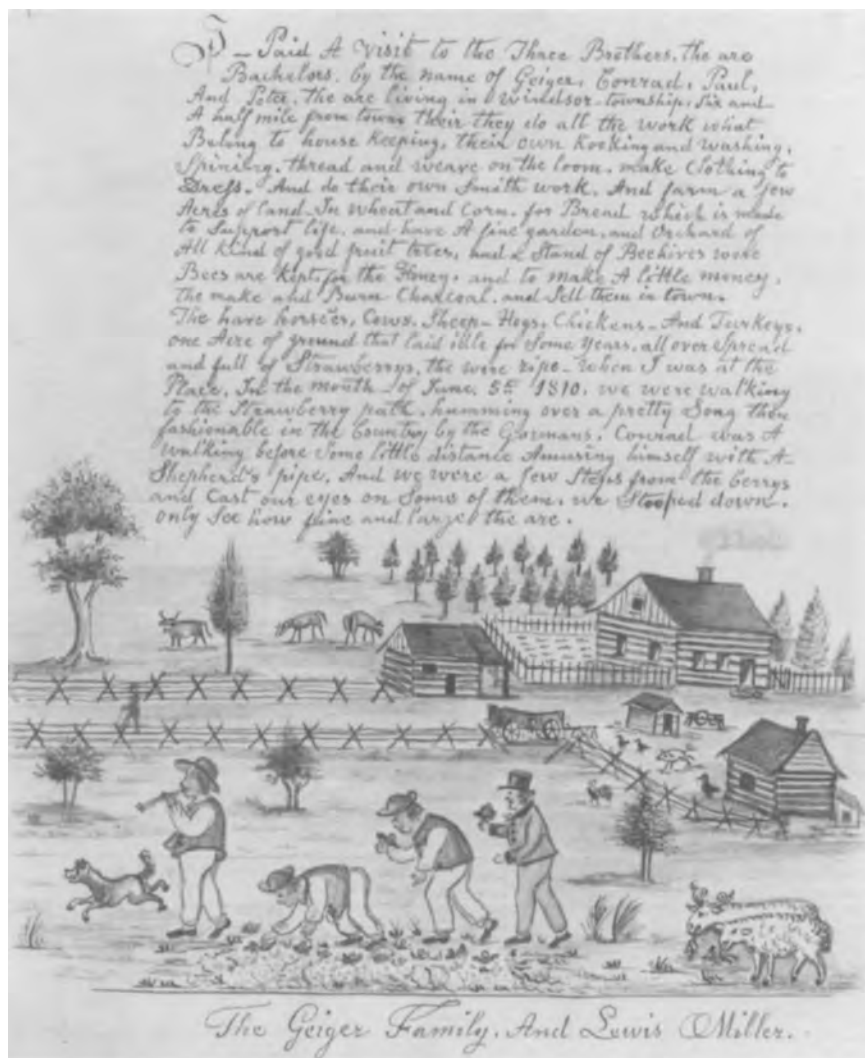 I - Paid A visit to the Three Brothers, the are
Bachelors, by the name of Geiger, Conrad, Paul,
And Peter, the are living in windsor township, Six and
A half mile from town, their they do all the work what
Belong to house keeping, their own Kooking and washing,
Spining, thread and weave on the loom, make Clothing to
Dress. And do their own Smith work, And farm a few
Acres of land - In wheat and Corn, for Bread which is made
to Support life, and have A fine garden, and Orchard of
All kind of good fruit trees, and a Stand of Beehives were
Bees are Kept, for the Honey, and to make A little money,
the make and Burn Charcoal, and Sell them in town.
The have horses, Cows, Sheep - Hogs, Chickens - And Turkeys,
one Acre of ground that laid idle for Some years, all over Spread
and full of Strawberrys, the were ripe - when I was at the
Place, In the month of June, 5th 1810, we were walking
to the Strawberry path, humming over a pretty Song then
fashionable in the Country by the Germans, Conrad was A
walking before Some little distance Amusing himself with A-
Shepherd's pipe, And we were a few Steps from the berrys
and Cast our eyes on Some of them, we Stooped down,
only See how fine and large the are.
The Geiger Family, And Lewis Miller.